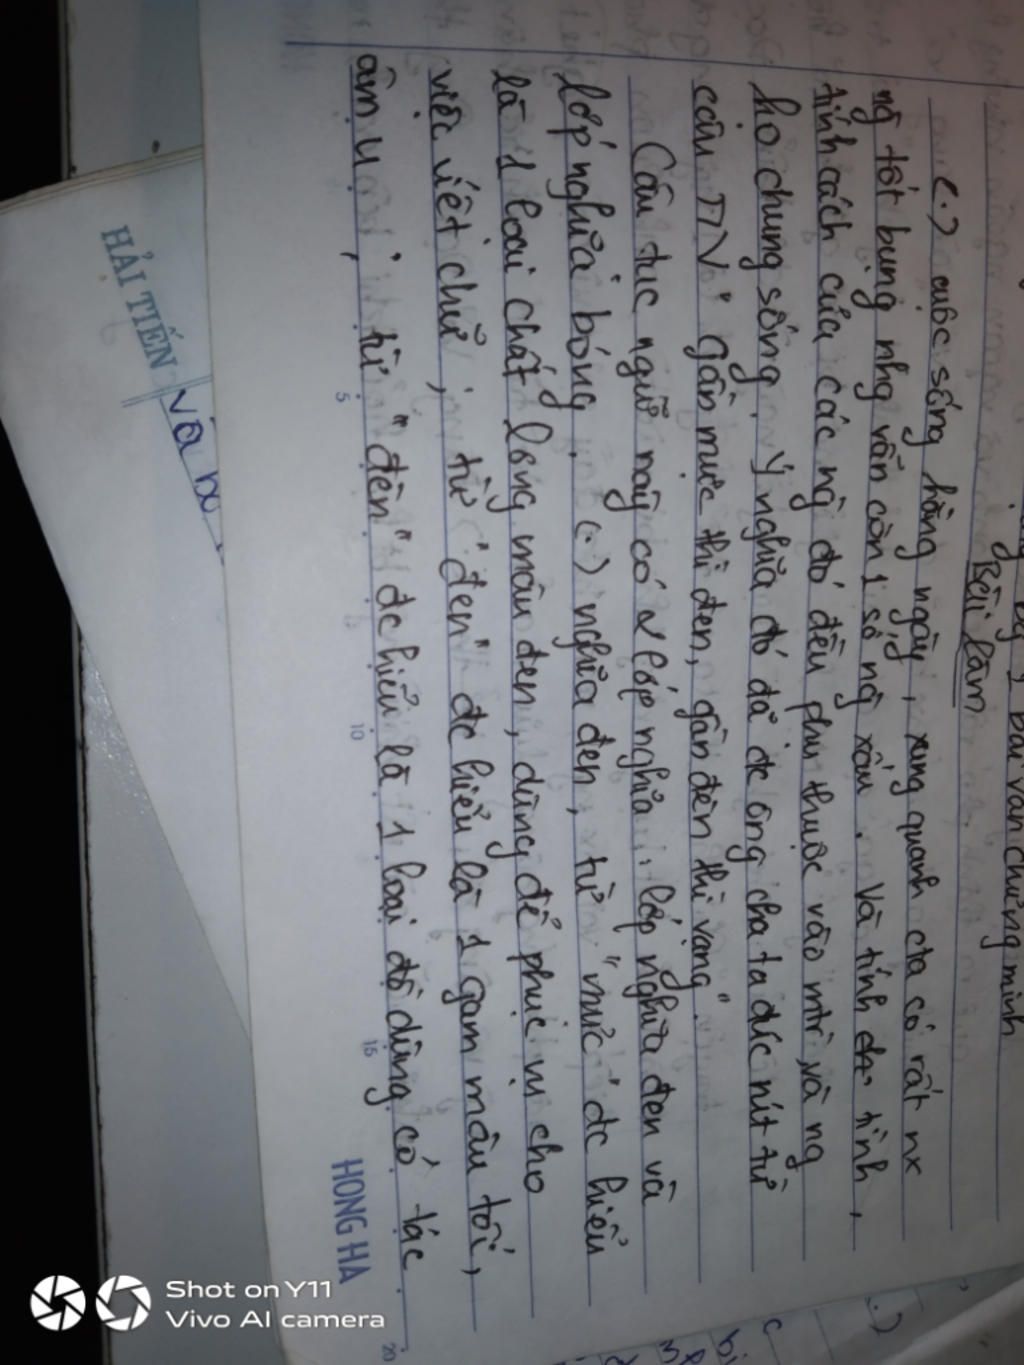 bài văn chứng minh
Bài làm
(.) cuộc sống hằng ngày, xung quanh cta có rất nx
ng tốt bụng nhg vẫn còn 1 số ng xấu. Và tính tình,
tính cách của các ng đó đều phụ thuộc vào mtr và ng
họ chung sống. Ý nghĩa đó đã đc ông cha ta đúc rút từ
câu TN "Gần mực thì đen, gần đèn thì rạng".
Câu tục ngữ này có 2 lớp nghĩa. lớp nghĩa đen và
lớp nghĩa bóng. (.) nghĩa đen, từ "mực" đc hiểu
là 1 loại chất lỏng màu đen, dùng để phục vụ cho
việc viết chữ, từ "đen" đc hiểu là 1 gam màu tối,
âm u, từ "đèn" đc hiểu là 1 loại đồ dùng có tác
5 10 15 20
HONG HA
HẢI TIẾN
và
Shot on Y11
Vivo AI camera